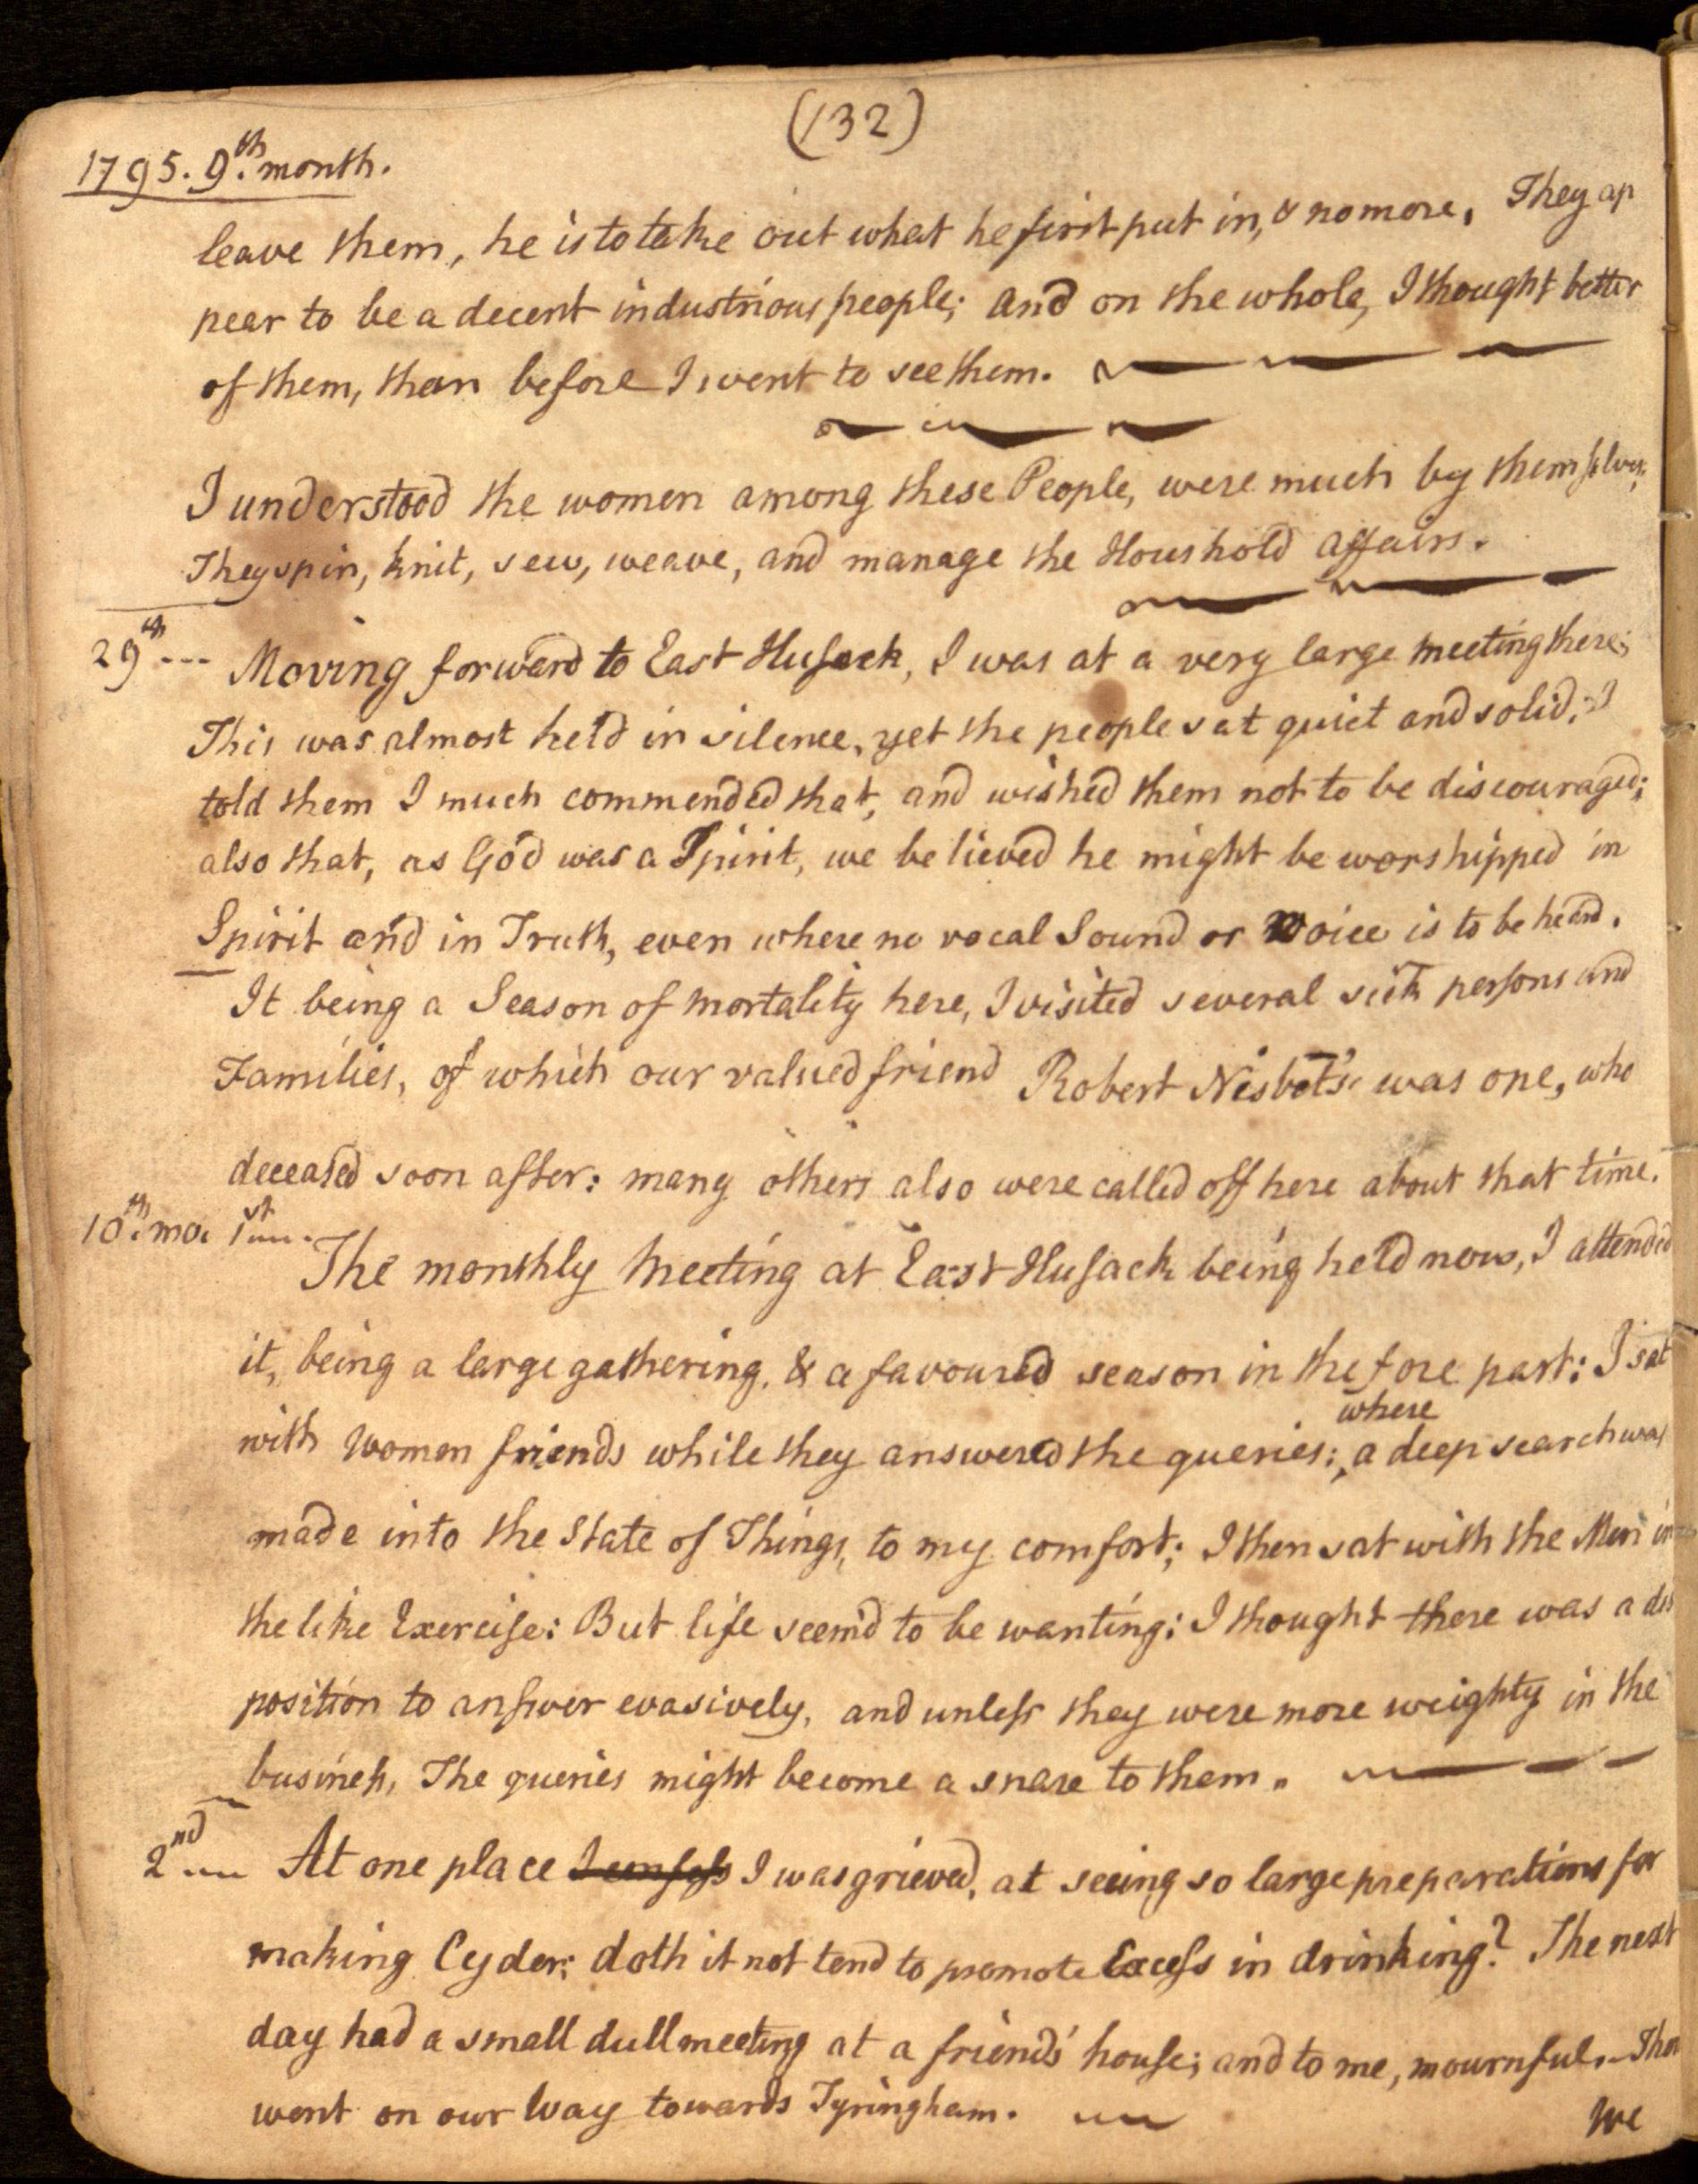 (132)
1795. 9th. month.
leave them, he is to take out what he first put in, & no more, They ap
pear to be a decent industrious people; and on the whole, I thought better
of them, than before I went to see them.
I understood the women among these People, were much by themselves;
They spin, knit, sew, weave, and manage the Houshold affairs.
29th --- Moving forward to East Husack, I was at a very large meeting there;
This was almost held in silence, yet the people sat quiet and solid; I
told them I much commended that, and wished them not to be discouraged;
also that, as God was a Spirit, we believed he might be worshipped in
Spirit and in Truth, even where no vocal Sound or Voice is to be heard.
It being a Season of mortality here, I visited several sick persons and
Families, of which our valued friend Robert Nisbet's was one, who
deceased soon after: many others also were called off here about that time.
10th. mo. 1st
The monthly meeting at East Husack being held now, I attended
it, being a large gathering, & a favoured season in the fore part: I sat
with women friends while they answered the queries; where a deep search was
made into the State of Things, to my comfort; I then sat with the Men in
the like Exercise: But life seem'd to be wanting: I thought there was a dis
position to answer evasively, and unless they were more weighty in the
business, The queries might become a snare to them.
2nd --- At one place I was grieved, at seeing so large preparations for
making Cyder; doth it not tend to promote Excess in drinking? The next
day had a small dull meeting at a friends' house; and to me, mournful. Then
went on our way towards Tyringham.
We